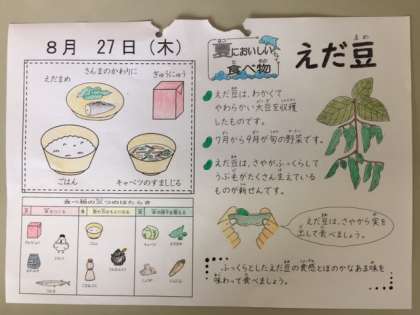 8月 27日(木)
さんまのかわりに
えだまめ
ぎゅうにゅう
ごはん
キャベツのすましじる
夏においしい
食べ物
えだ豆
えだ豆は、わかくて
やわらかい大豆を収穫
したものです。
7月から9月が旬の野菜です。
えだ豆は、さやがふっくらして
つぶもがたくさん生えている
ものが新せんです。
えだ豆は、さやから実を
出して食べましょう。
ふっくらとしたえだ豆の食感とほのかなあま味を
味わって食べましょう。
食べ物の三つのはたらき